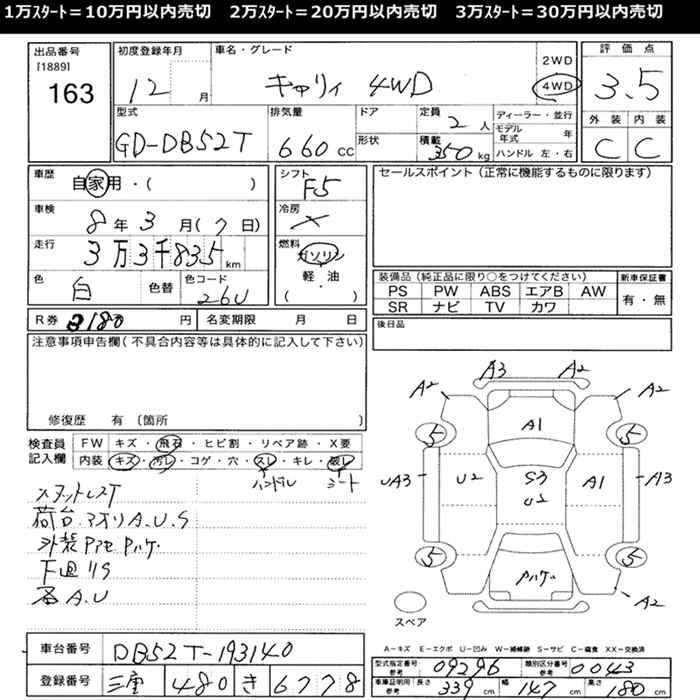 1万ｽﾀｰﾄ＝10万円以内売切　2万ｽﾀｰﾄ＝20万円以内売切　3万ｽﾀｰﾄ＝30万円以内売切
出品番号
[1889]
163
初度登録年月
12 月
車名・グレード
キャリィ 4WD
2WD
4WD
評価点
3.5
外装 内装
C C
型式
GD-DB52T
排気量
660 CC
ドア
形状
定員
2 人
積載
350 kg
ディーラー・並行
モデル年式 年
ハンドル 左・右
車歴
自家用・( )
車検
8 年 3 月(7 日)
走行
3万3千835 km
色
白
色替
色コード
26U
シフト
F5
冷房
×
燃料
ガソリン
軽・油
( )
セールスポイント（正常に機能するものに限ります）
装備品（純正品に限り○をつけてください）
PS PW ABS エアB AW
SR ナビ TV カワ
新車保証書
有・無
R券 8180 円
名変期限 月 日
後日品
注意事項申告欄（不具合内容等は具体的に記入して下さい）
修復歴 有 〔箇所 〕
検査員記入欄
FW キズ・飛石・ヒビ割・リペア跡・X要
内装 キズ・汚レ・コゲ・穴・スレ・キレ・破レ
ハンドル シート
スタットレスT
荷台.アオリA.U.S
外装PアセPハゲ.
下廻リS
A.U
A3 A2
A2 A2
A1
5 5
UA3 U2 S3 U2 A1 A3
5 5
Pハゲ
A2
スペア
A－キズ E－エクボ U－凹み W－補修跡 S－サビ C－腐食 XX－交換済
車台番号 DB52T-193140
登録番号 三重 480 き 6778
型式指定番号 参考 09296
類別区分番号 参考 0043
車庫証明用 参考 長さ 339 cm 幅 147 cm 高さ 180 cm